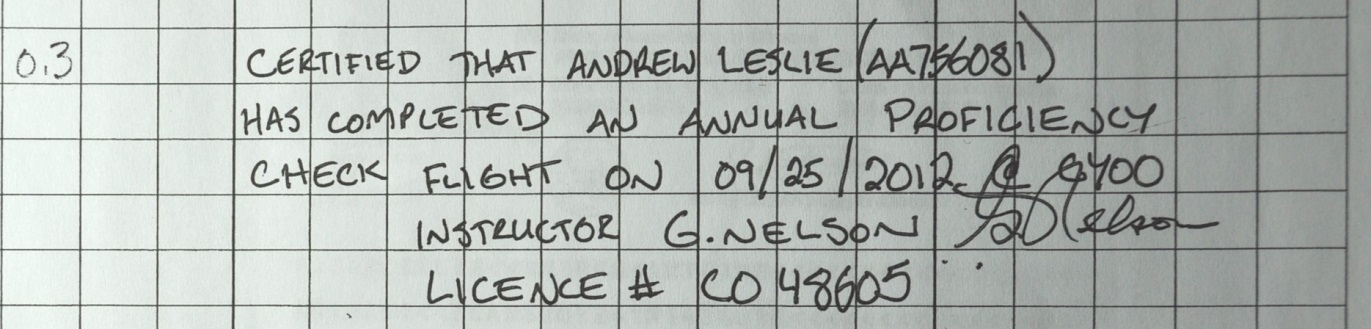 0.3 CERTIFIED THAT ANDREW LESLIE (AA756081)
HAS COMPLETED AN ANNUAL PROFICIENCY
CHECK FLIGHT ON 09/25/2012 @
INSTRUCTOR G. NELSON
LICENCE # CO 48605